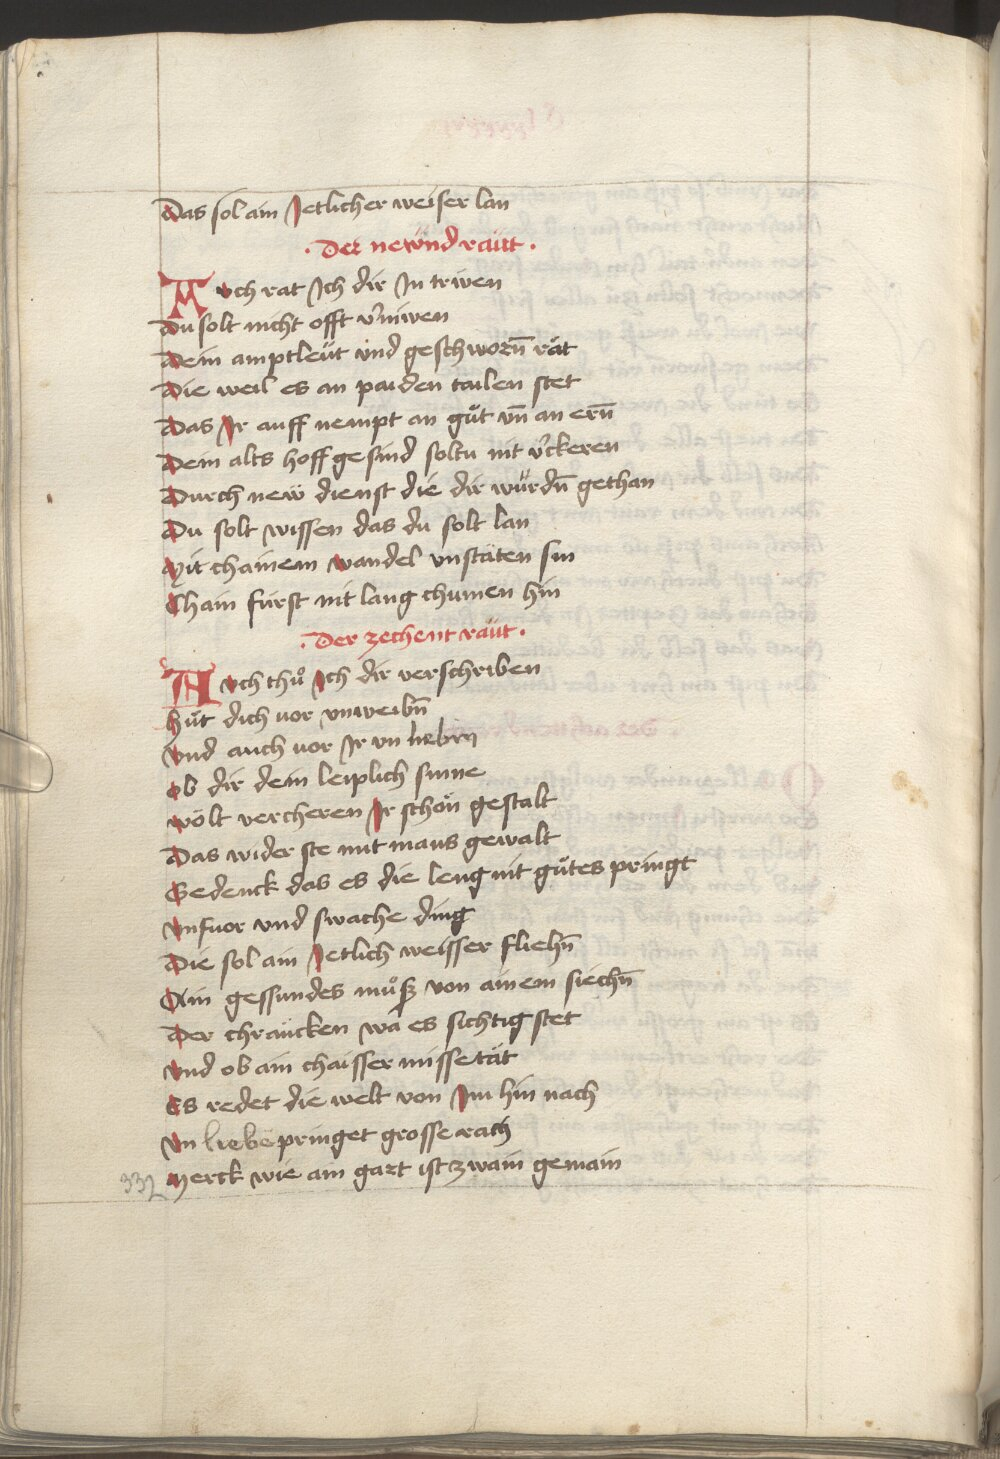 Das sol ain Jetlicher weiser lan
· Der newnd raütt ·
Auch rat Ich dir In triwen
Du solt nicht offt v̓niwen
Dein amptleüt vnd geschworn̄ rät
Die weil es an paiden tailen stet
Das Ir auff nempt an guͦt vn̄ an ern̄
Dein alts hoff gesind soltu nit v̓ckeren
Durch new dienst die dir wurdn̄ gethan
Du solt wissen das du solt lan
Mit chainem wandel vnstäten sin
Chain fürst nit lang chumen hin
· Der zechent raüt ·
Auch thuͦ Ich dir verschriben
Huͤt dich vor vnweibn̄
Vnd auch vor Ir vn liebin
Ob dir dein leiplich sinne
Wölt vercheren Ir schön gestalt
Das wider ste mit mans gewalt
Gedenck das es die leng nit guͦtes pringt
Vnfuor vnd swache ding
Die sol ain Jetlich weisser fliehn̄
Ain gessundes muͦß von ainem siechn̄
Der chraücken wa es sichtig stet
Vnd ob ain chaisser missetät
Es redet die welt von Im hin nach
Vn liebe pringet grosse rach
Merck wie ain gart ist zwain gemain
332